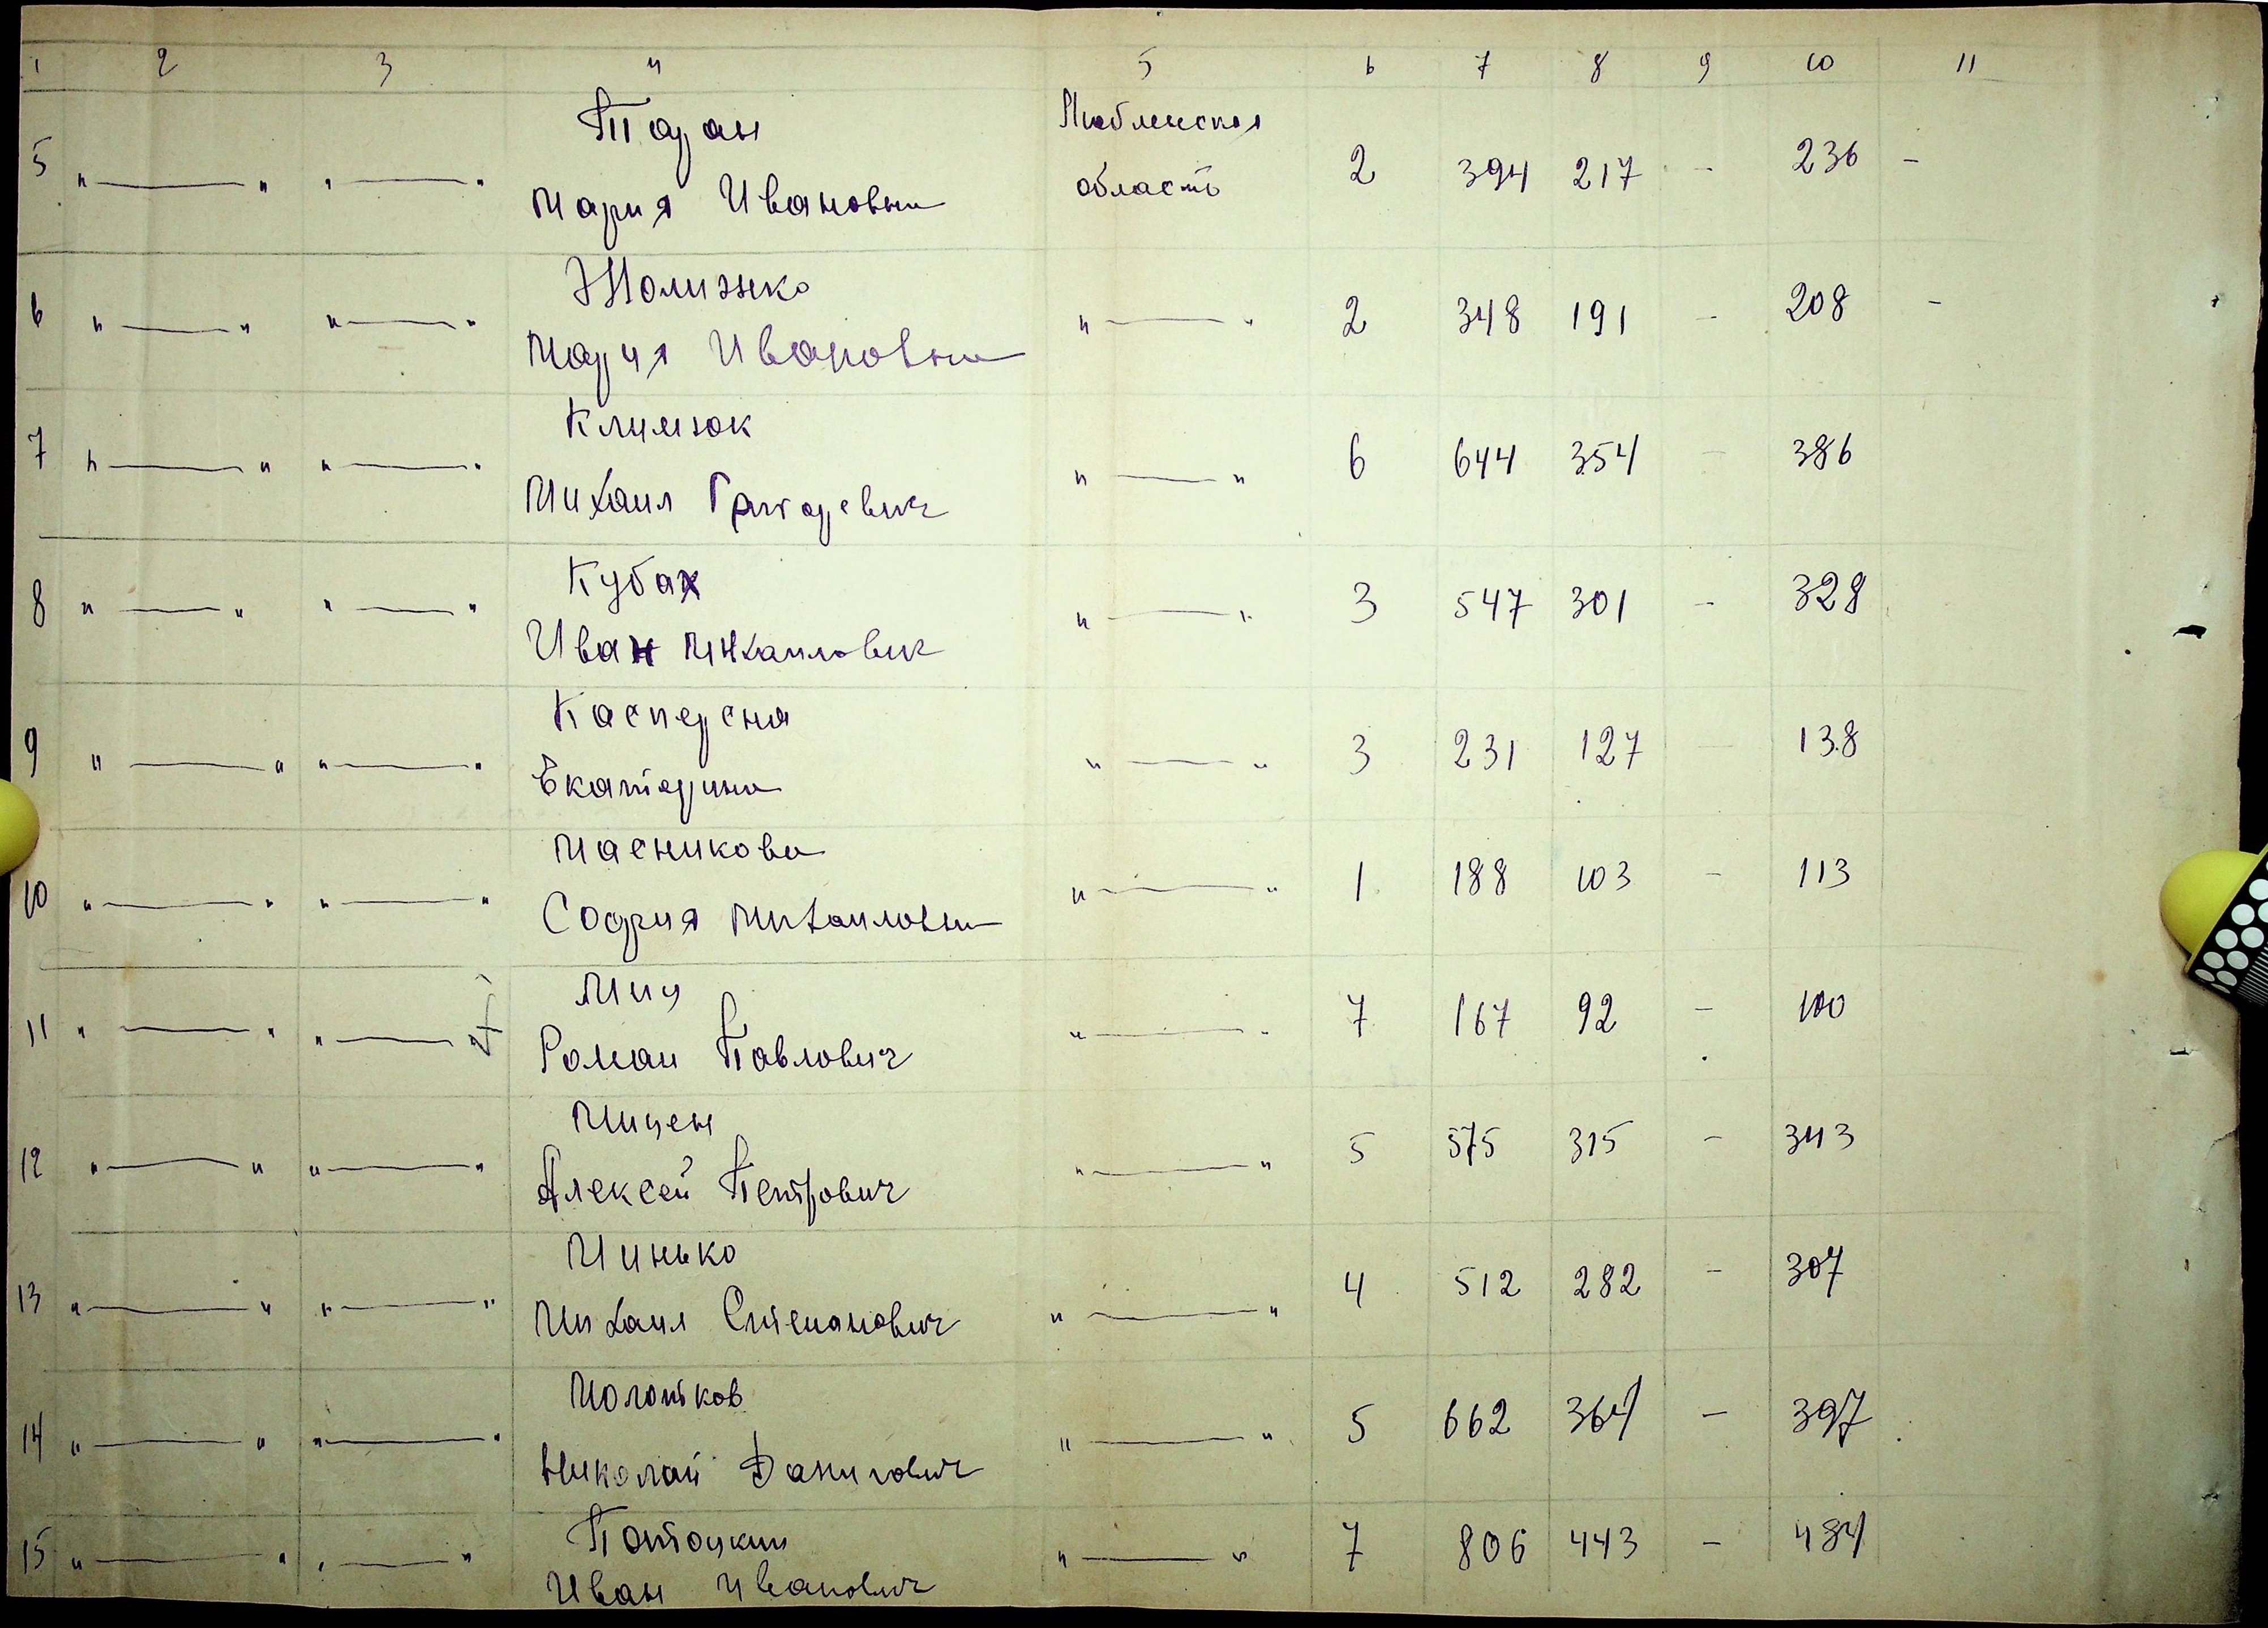 1 2 3 4 5 6 7 8 9 10 11
Таран Люблинская
5 " — " " — " Мария Ивановна область 2 394 217 - 236 -
Жолизко
6 " — " " — " Мария Ивановна " — " 2 348 191 - 208 -
Климюк
7 " — " " — " Михаил Григоревич " — " 6 644 354 - 386
Кубах
8 " — " " — " Иван Михаилович " — " 3 547 301 - 328
9 " — " " — " Екатерина " — " 3 231 127 - 138
Масникова
10 " — " " — " София Михаиловна " — " 1 188 103 - 113
Миц
11 " — " " — " Роман Павлович " — " 7 167 92 - 100
Мицен
12 " — " " — " Алексей Петрович " — " 5 575 315 - 343
Минько
13 " — " " — " Михаил Степанович " — " 4 512 282 - 307
Молотков
14 " — " " — " Николай Данилович " — " 5 662 364 - 397
Потоцкии
15 " — " " — " Иван Иванович " — " 7 806 443 - 484